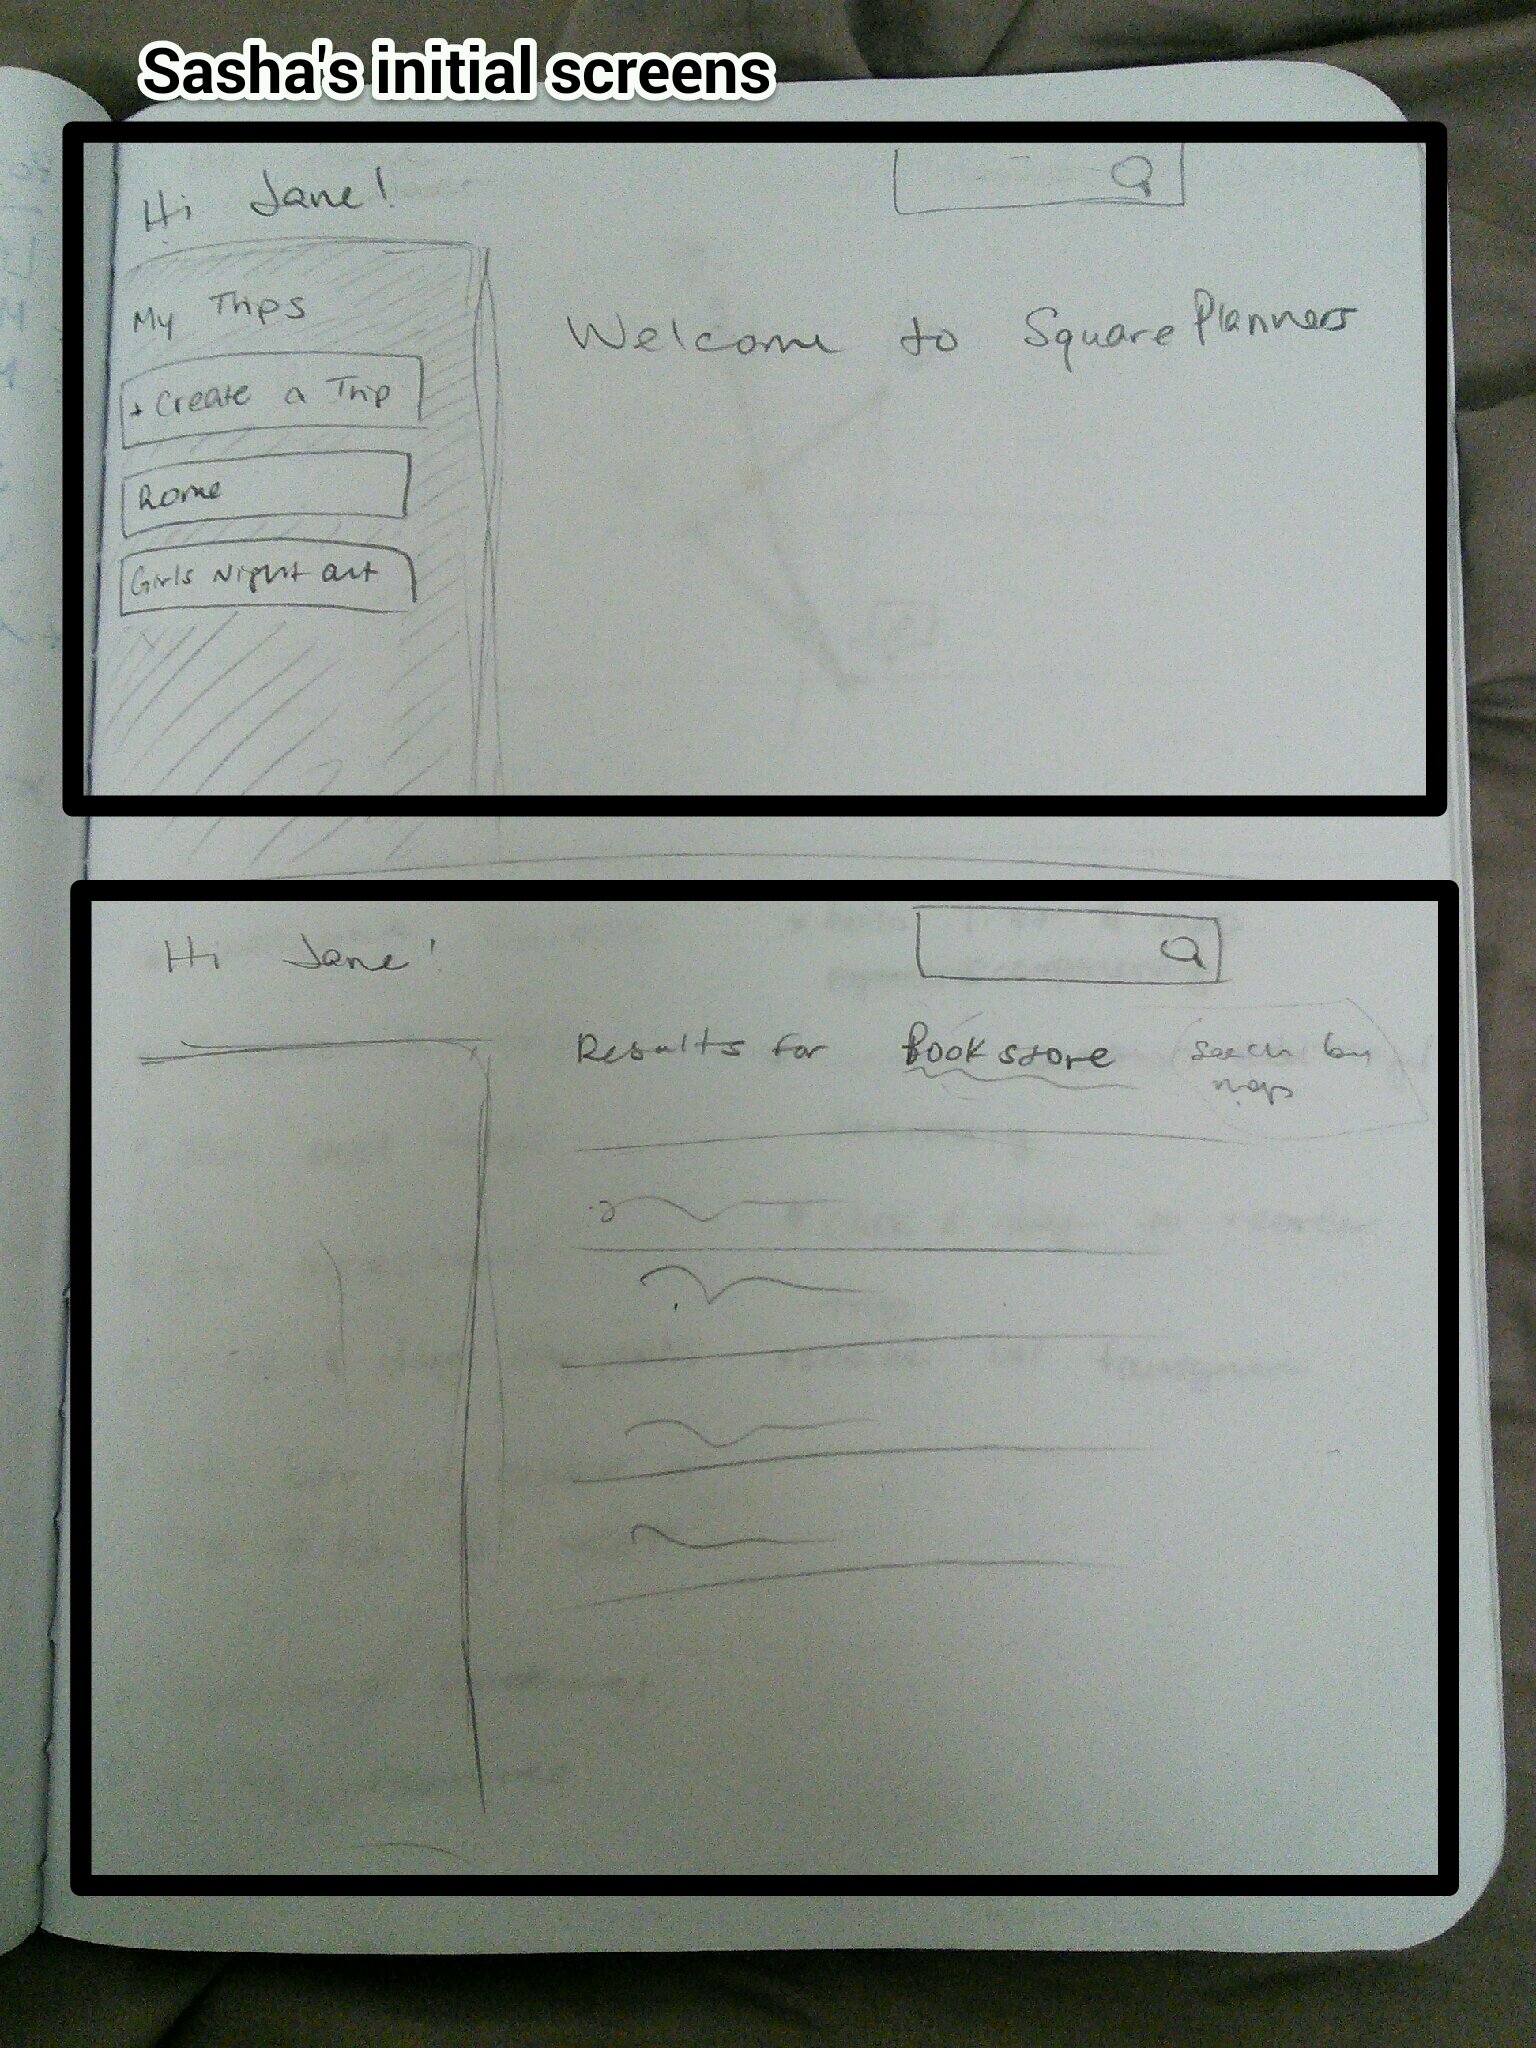 Sasha's initial screens
Hi Jane!
My Trips
+ Create a Trip
Rome
Girls Night out
Welcome to Square Planners
Hi Jane!
Results for Bookstore
search by
map